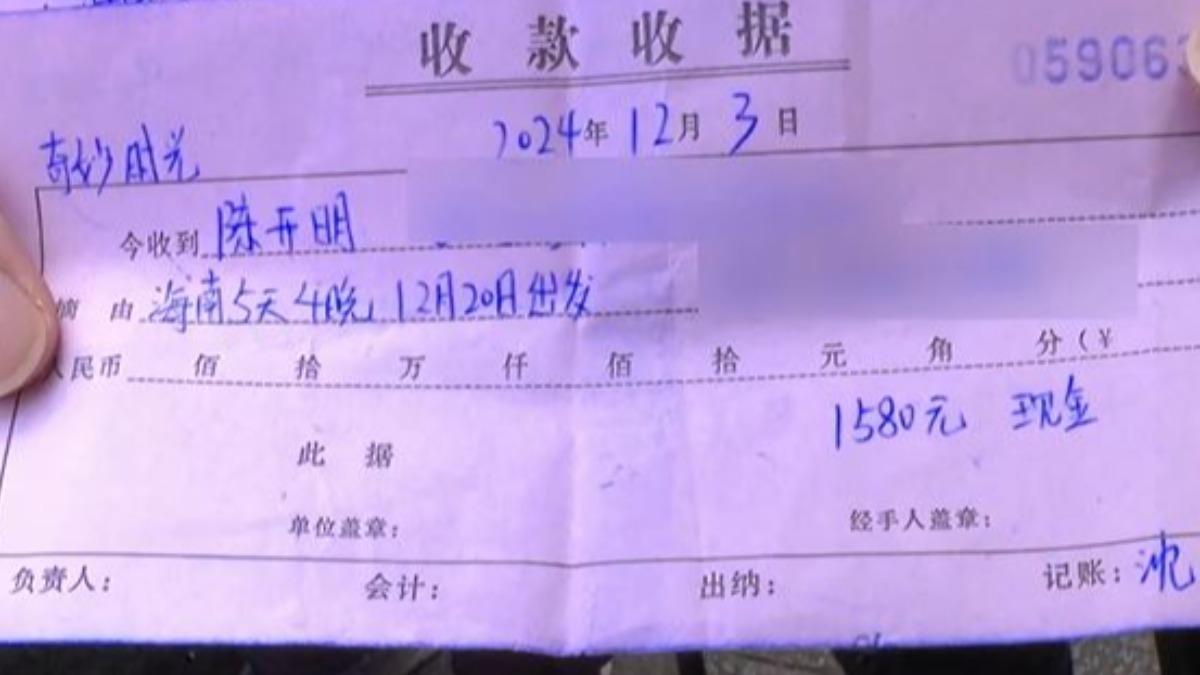 收款收据
059063
2024年12月3日
奇妙时光
今收到 陈开明
由 海南5天4晚 12月20日出发
人民币 佰 拾 万 仟 佰 拾 元 角 分(¥
1580元 现金
此据
单位盖章: 经手人盖章:
负责人: 会计: 出纳: 记账: 沈